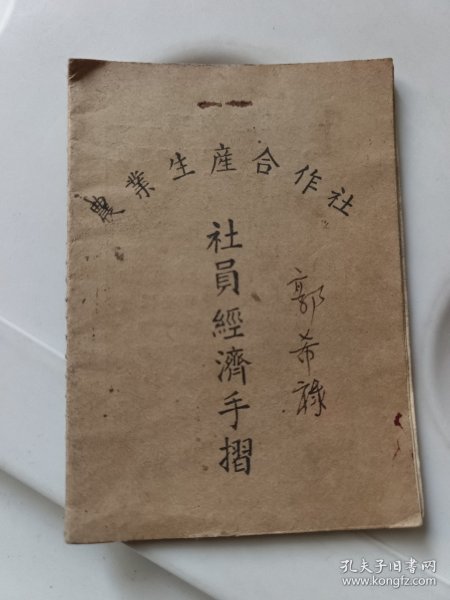 農業生産合作社
社員經濟手摺
郭希祿
孔夫子旧书网
www.kongfz.com